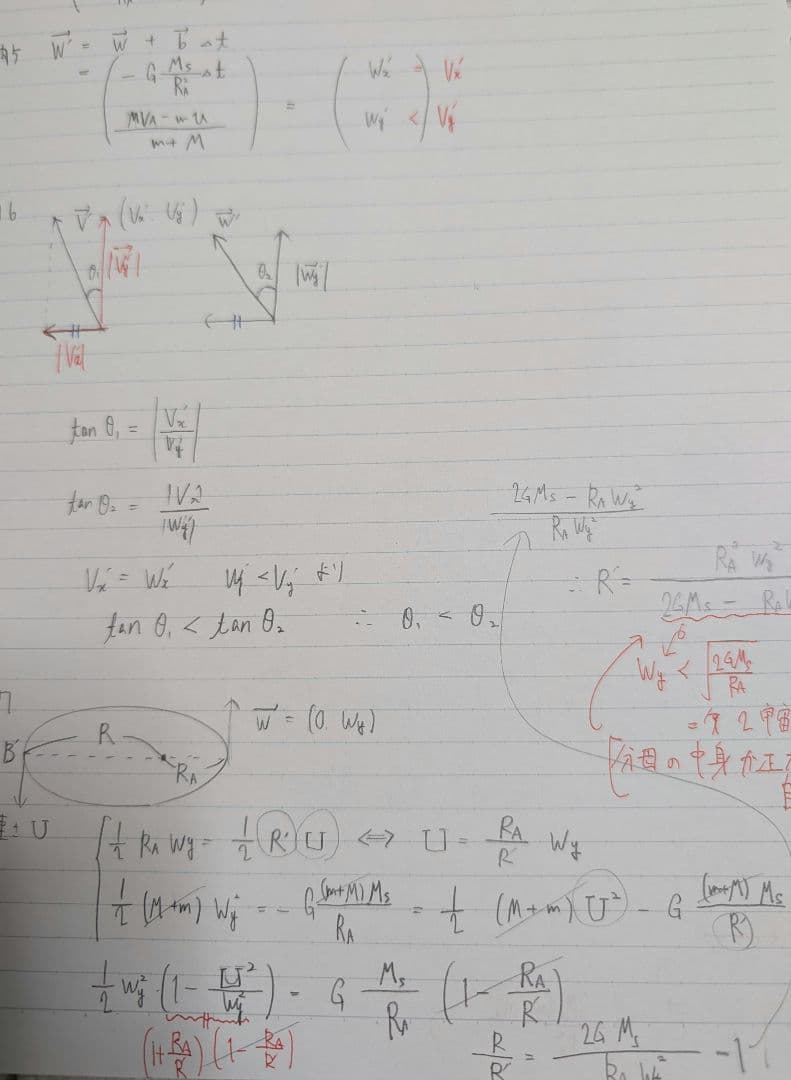 問5 w⃗' = w⃗ + b⃗ Δt
= ( -G Ms/RA² Δt , (MVA - mu)/(m+M) ) = ( Wx' = , Wy' < ) Vx' , Vy'
16 V⃗' (Vx' Vy') W⃗'
θ₁ |V⃗y'| θ₂ |W⃗y'|
|Vx'|
tan θ₁ = |Vx'/Vy'|
tan θ₂ = |Vx'|/|Wy'|
Vx' = Wx' Wy' < Vy' より
tan θ₁ < tan θ₂ ∴ θ₁ < θ₂
(2GMs - RA Wy²)/(RA Wy²)
∴ R' = RA² Wy²/(2GMs - RA W
Wy < √(2GMs/RA)
= 第2宇宙
分母の中身が正
7
B' R RA w⃗ = (0, Wy)
U
1/2 RA Wy = 1/2 R' U ⇔ U = RA/R' Wy
1/2 (M+m) Wy² = - G (m+M)Ms/RA = 1/2 (M+m) U² - G (m+M) Ms/R'
1/2 Wy² (1 - U²/Wy²) = G Ms/RA (1 - RA/R')
(1 + RA/R') (1 - RA/R')
R/R' = 2GMs/(RA Wy²) - 1